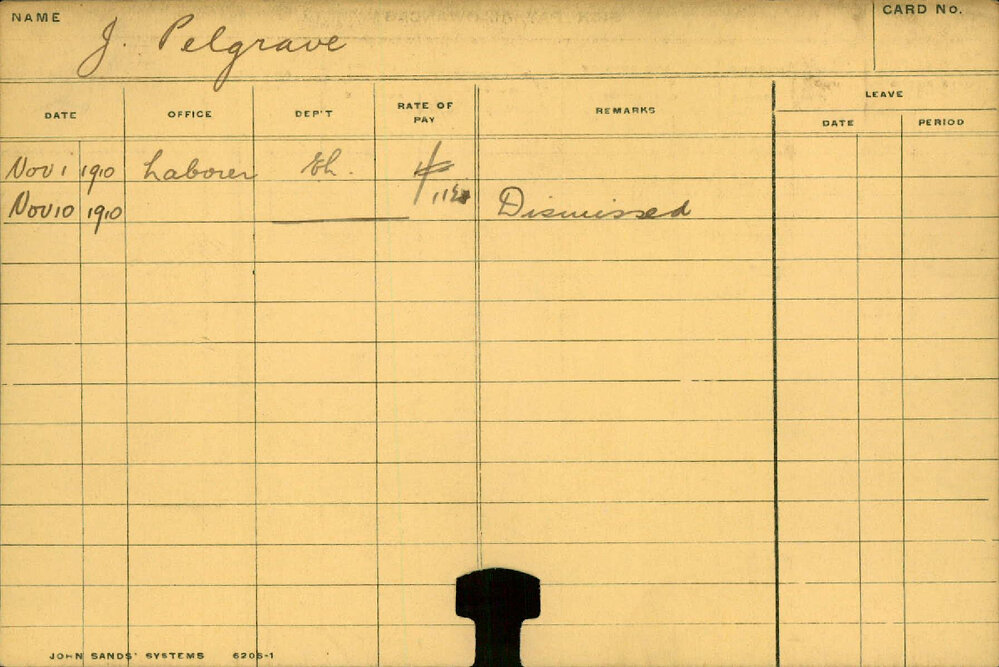 NAME J. Pelgrave CARD No.
DATE OFFICE DEP'T RATE OF PAY REMARKS LEAVE
DATE PERIOD
Nov 1 1910 Laborer Eh.
Nov 10 1910 Dismissed
JOHN SANDS' SYSTEMS 6206-1